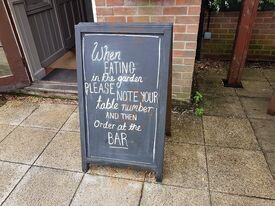 When
EATING
in the garden
PLEASE NOTE YOUR
table number
AND THEN
Order at the
BAR